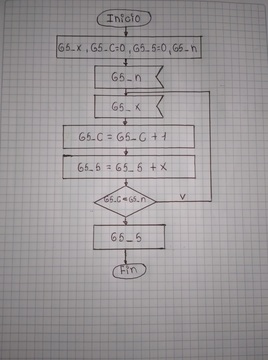 Inicio
G5_x, G5_C=0, G5_S=0, G5_n
G5_n
G5_x
G5_C = G5_C + 1
G5_S = G5_S + x
G5_C < G5_n
V
G5_S
Fin